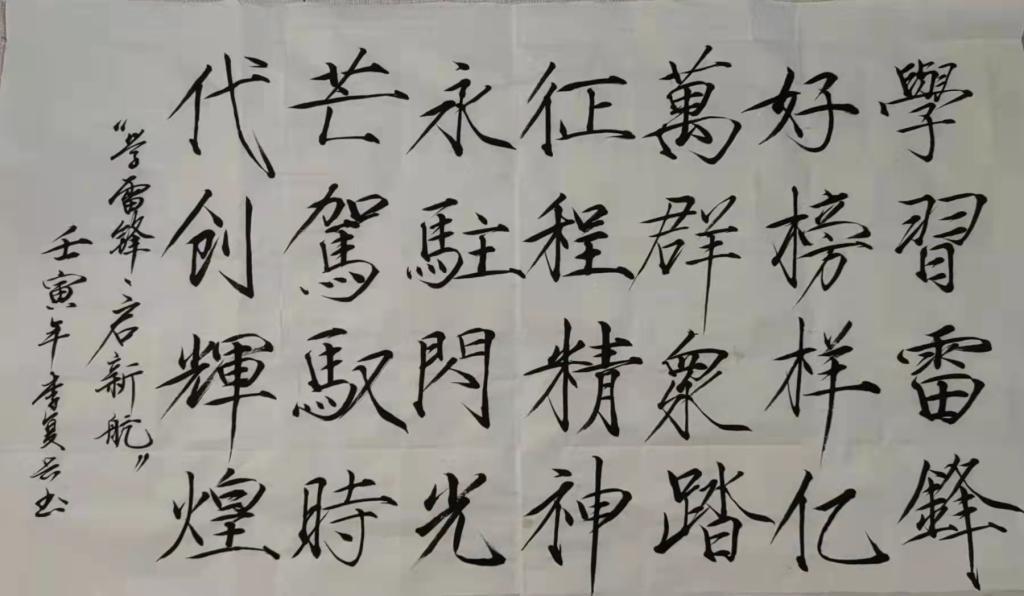 學習雷鋒
好榜样亿
萬群衆踏
征程精神
永駐閃光
芒駕馭時
代創輝煌
“学雷鋒、启新航”
壬寅年 李复兴书